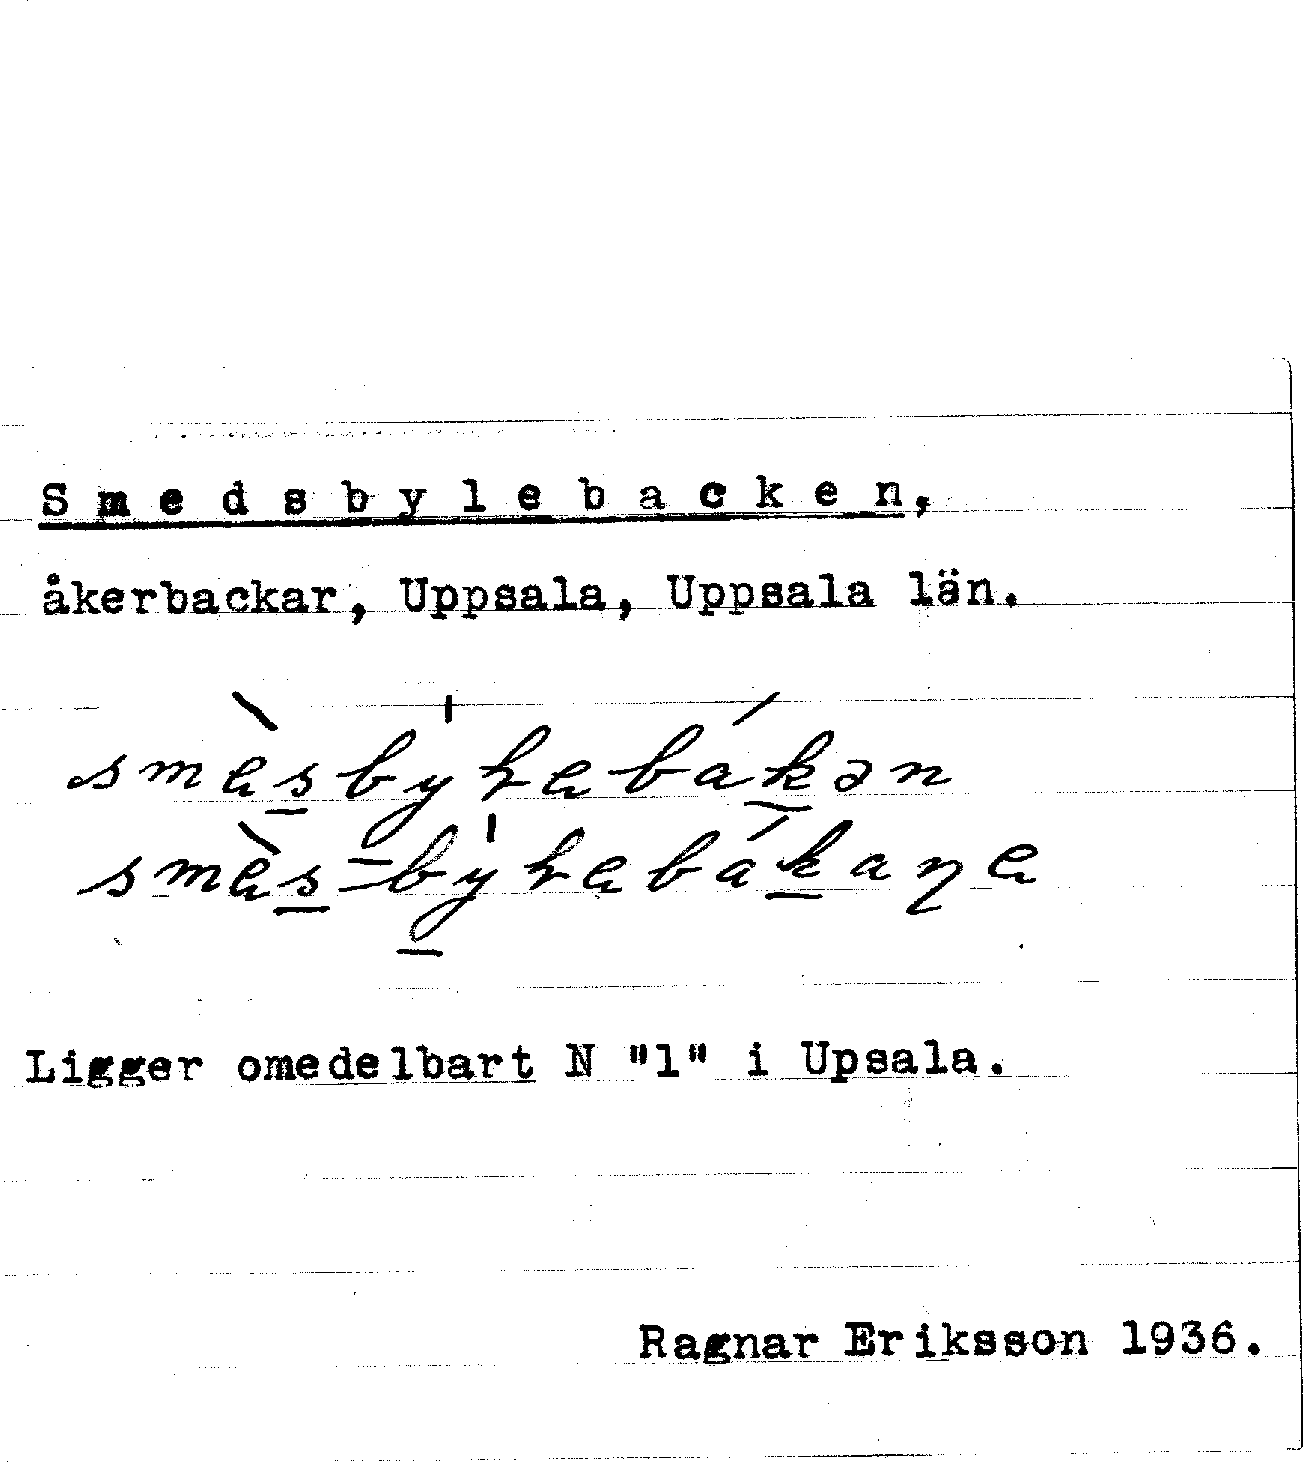 Smedsbylebacken,
åkerbackar, Uppsala, Uppsala län.
Ligger omedelbart N "1" i Upsala.
Ragnar Eriksson 1936.